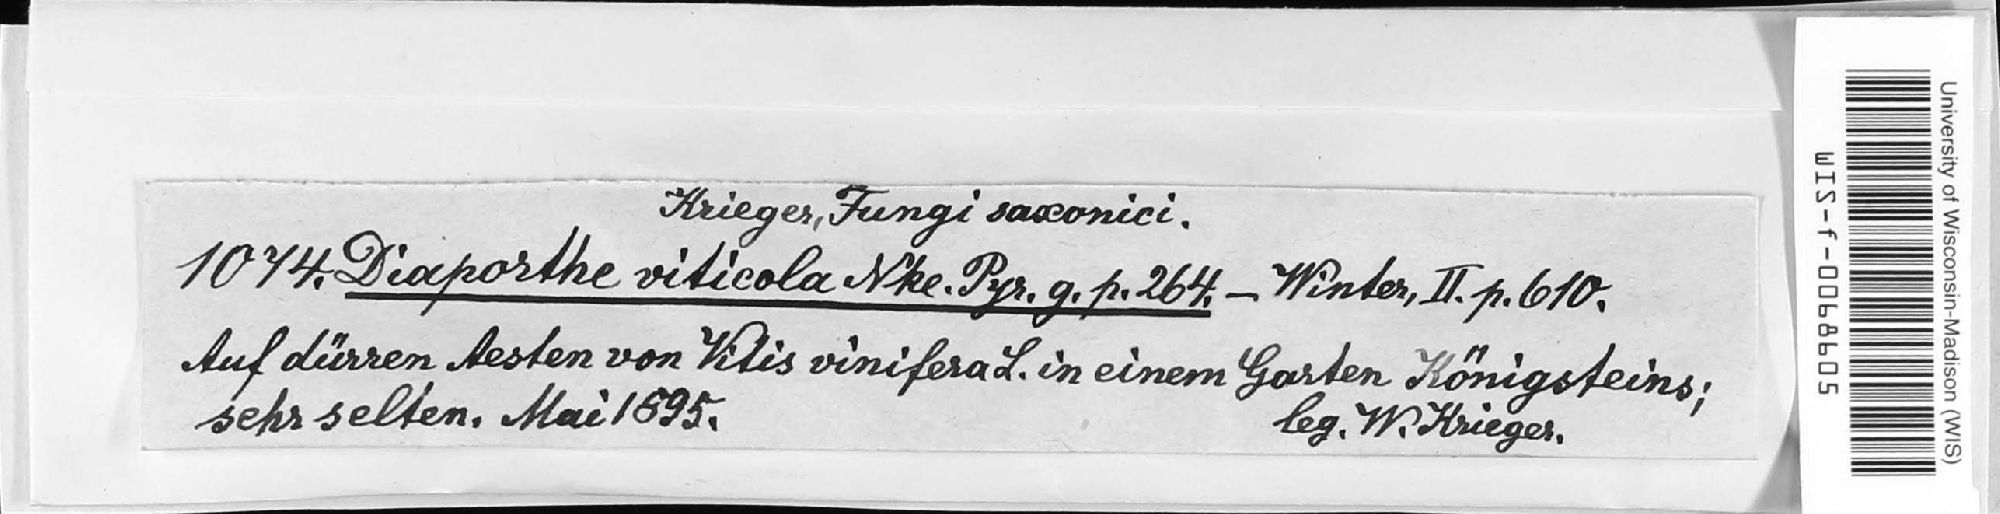 Krieger, Fungi saxonici.
1074. Diaporthe viticola Nke. Pyr. g. p. 264. – Winter, II. p. 610.
Auf dürren Aesten von Vitis vinifera L. in einem Garten Königsteins;
sehr selten. Mai 1895.
leg. W. Krieger.
WIS-f-0068605
University of Wisconsin-Madison (WIS)